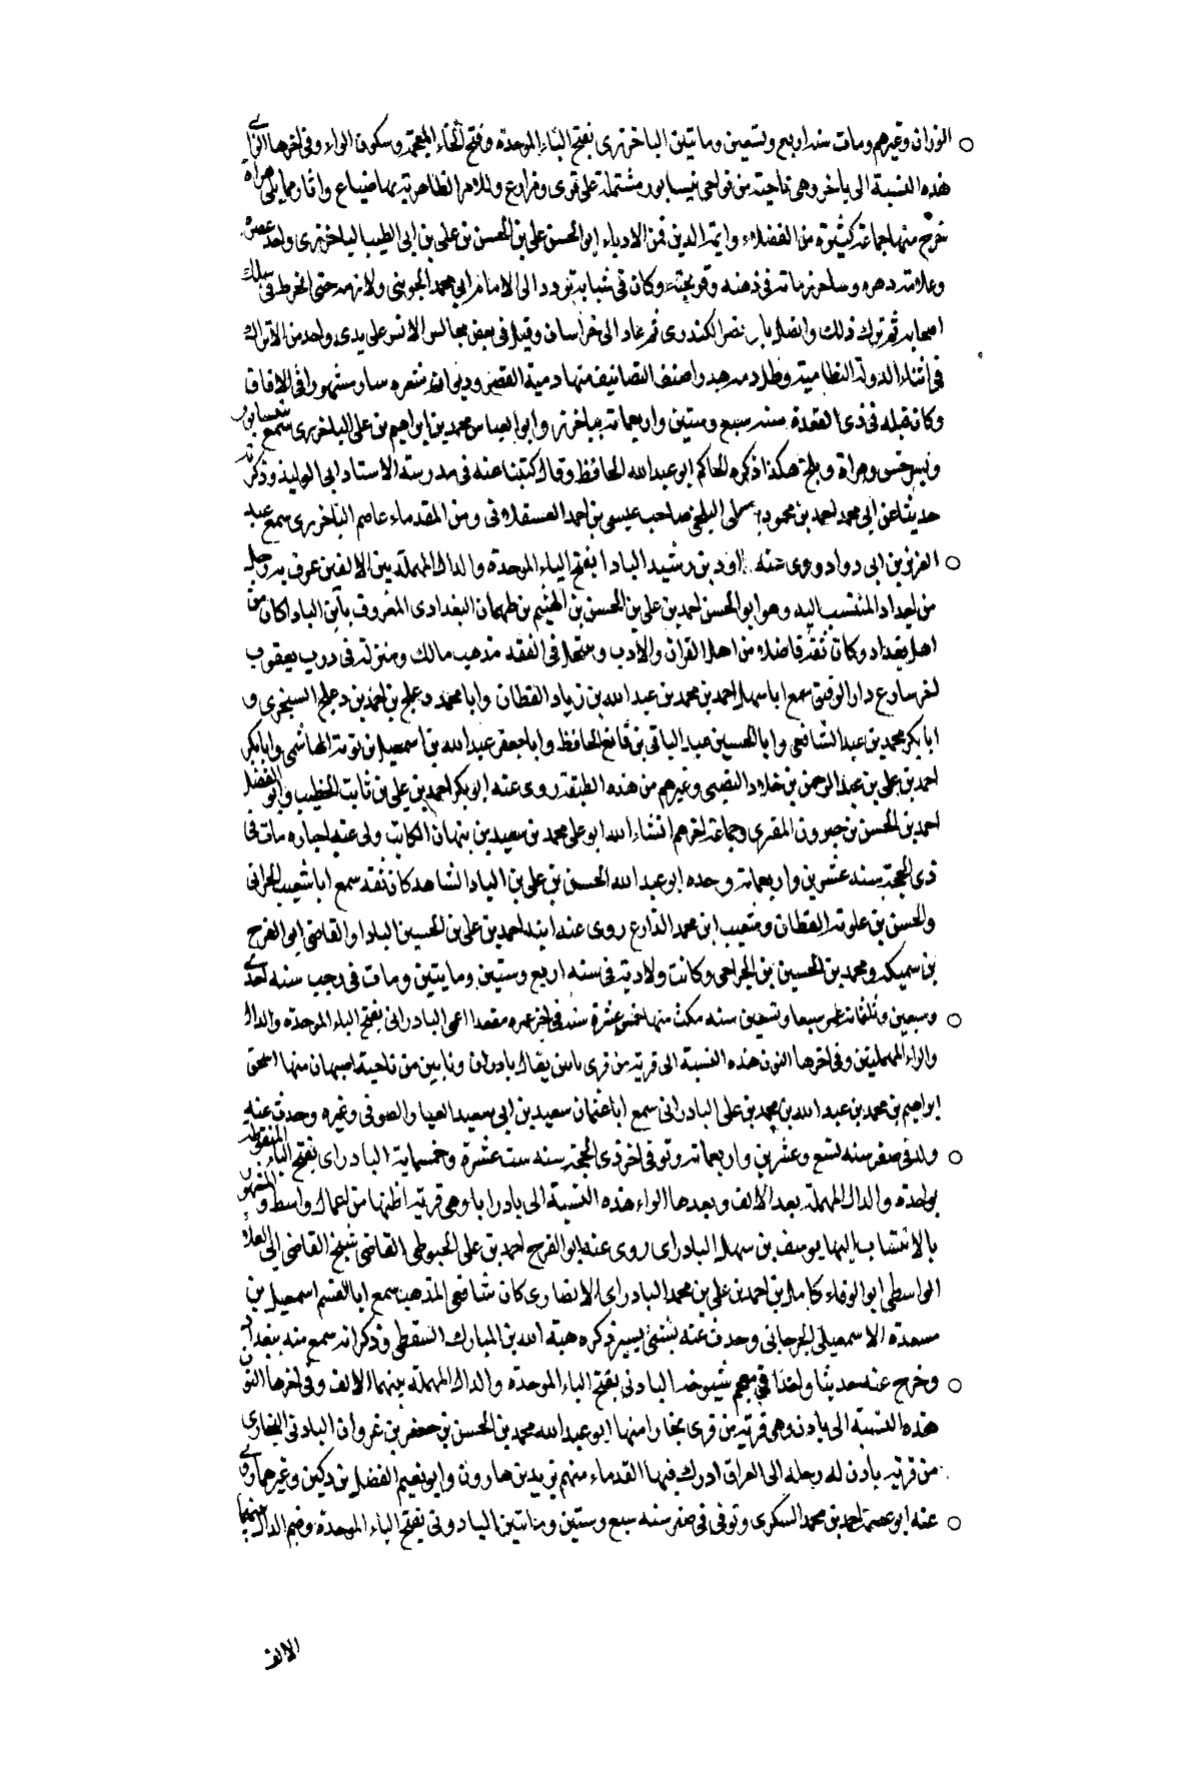 الوزان وغيرهم ومات سنة اربع وتسعين ومايتين الباخرزى بفتح الباء الموحدة وفتح الخاء المعجمة وسكون الراء وفى اخرها الزاى
هذه النسبة الى باخرز وهى ناحية من نواحى نيسابور مشتملة على قرى ومزارع وللامراء الطاهرية بها ضياع واثار مما يلى هراة
خرج منها جماعة كثيرة من الفضلاء وايمة الدين فمن الادباء ابو الحسن على بن الحسن بن على بن ابى الطيب الباخرزى واحد عصره
وعلامة دهره وساحر زمانه فى ذهنه وقريحته وكان فى شبابه تردد الى الامام ابى محمد الجوينى ولازمه حتى انخرط فى سلك
اصحابه ثم ترك ذلك واتصل بابى نصر الكندرى ثم عاد الى خراسان وقتل فى بعض مجالس الانس على يدى واحد من الاتراك
فى اثناء الدولة النظامية وظل دمه هدرا صنف التصانيف منها دمية القصر وديوان شعره سار مشهور فى الافاق
وكان قتله فى ذى القعدة سنة سبع وستين واربعماية بباخرز وابو العباس محمد بن ابراهيم بن على الباخرزى سمع بنيسابور
وبسرخس وهراة وبلخ هكذا ذكره الحاكم ابو عبد الله الحافظ وقال كتبنا عنه فى مدرسة الاستاد ابى الوليد وذكر
حديثا عن ابى محمد احمد بن محمود البلخى صاحب عيسى بن احمد العسقلانى ومن القدماء عاصم الباخرزى سمع عبد
العزيز بن ابى رواد روى عنه داود بن رشيد البادا بفتح الباء الموحدة والدال المهملة بين الالفين عرف به رجل
من اجداد المنتسب اليه وهو ابو الحسن احمد بن على بن الحسن بن الهيثم بن طهمان البغدادى المعروف بابن البادا كان من
اهل بغداد وكان ثقة فاضلا من اهل القران والادب وينتحل فى الفقه مذهب مالك ومنزله فى درب يعقوب
اخر شارع دار الرقيق سمع ابا سهل احمد بن محمد بن عبد الله بن زياد القطان وابا محمد دعلج بن احمد بن دعلج السجزى و
ابا بكر محمد بن عبد الشافعى وابا الحسين عبد الباقى بن قانع الحافظ وابا جعفر عبد الله بن اسمعيل بن توبة الهاشمى وابا بكر
احمد بن على بن عبد الرحمن بن خلاد النصيبى وغيرهم من هذه الطبقة روى عنه ابو بكر احمد بن على بن ثابت الخطيب وابو الفضل
احمد بن الحسن بن خيرون المقرى وجماعة اخرهم انشاء الله ابو على محمد بن سعيد بن نبهان الكاتب ولى عنه اجازه مات فى
ذى الحجة سنه عشرين واربعماية وجده ابو عبد الله الحسين بن على بن البادا الشاهد كان ثقه سمع ابا شعيب الحرانى
والحسن بن علويه القطان وشعيب ابن محمد الذارع روى عنه ابنه احمد بن على بن الحسين البادا والقاضى ابو الفرج
بن سميكه ومحمد بن الحسين بن الجراحى وكانت ولادته فى سنه اربع وستين ومايتين ومات فى رجب سنه احدى
وسبعين وثلثماية عمر سبعا وتسعين سنه مكث منها خمس عشرة سنة فى اخر عمره مقعدا اعمى البادرانى بفتح الباء الموحدة والدال
والراء المهملتين وفى اخرها النون هذه النسبة الى قرية من قرى نايين يقال بادران ونايين من ناحية اصبهان منها اسحق
ابراهيم بن محمد بن عبد الله بن محمد بن على البادرانى سمع ابا عثمان سعيد بن ابى سعيد العيار الصوفى وغيره وحدث عنه
ولد فى صفر سنه تسع وعشرين واربعماية وتوفى اخر ذى الحجة سنه ست عشرة وخمسماية البادراى بفتح الباء المنقوطة
بواحدة والدال المهملة بعد الالف وبعدها الراء هذه النسبة الى بادرايا وهى قرية اظنها من اعمال واسط والمشهور
بالانتساب اليها يوسف بن سهل البادراى روى عنه ابو الفرج احمد بن على الحيوطى القاضى شيخ القاضى ابى العلاء
الواسطى ابو الوفاء كامل بن احمد بن على بن محمد البادراى الانصارى كان شافعى المذهب سمع ابا القسم اسمعيل بن
مسعدة الاسمعيلى الجرجانى وحدث عنه بشىء يسير ذكره هبة الله بن المبارك السقطى وذكر انه سمع منه ببغداد
وخرج عنه حديثا واحدا فى معجم شيوخه البادنى بفتح الباء الموحدة والدال المهملة بينهما الالف وفى اخرها النون
هذه النسبة الى بادن وهى قرية من قرى بخارا منها ابو عبد الله محمد بن الحسن بن جعفر بن غزوان البادنى البخارى
من قرية بادن له رحلة الى العراق ادرك فيها القدماء منهم يزيد بن هارون وابو نعيم الفضل بن دكين وغيرهما روى
عنه ابو عصمة احمد بن محمد السكرى وتوفى فى صفر سنه سبع وستين ومايتين البادونى بفتح الباء الموحدة وضم الدال بينهما
الالف